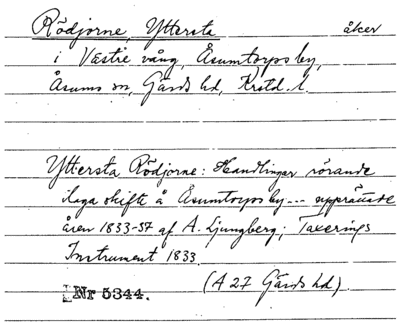 Rödjorne, Yttersta åker
i Västre vång, Åsumtorps by,
Åsums sn, Gärds hd, Krstd. l.
Yttersta Rödjorne: Handlingar rörande
laga skifte å Åsumtorps by --- upprättade
åren 1833-37 af A. Ljungberg; Taxerings
Instrument 1833.
(A 27 Gärds hd).
Nr 5344.